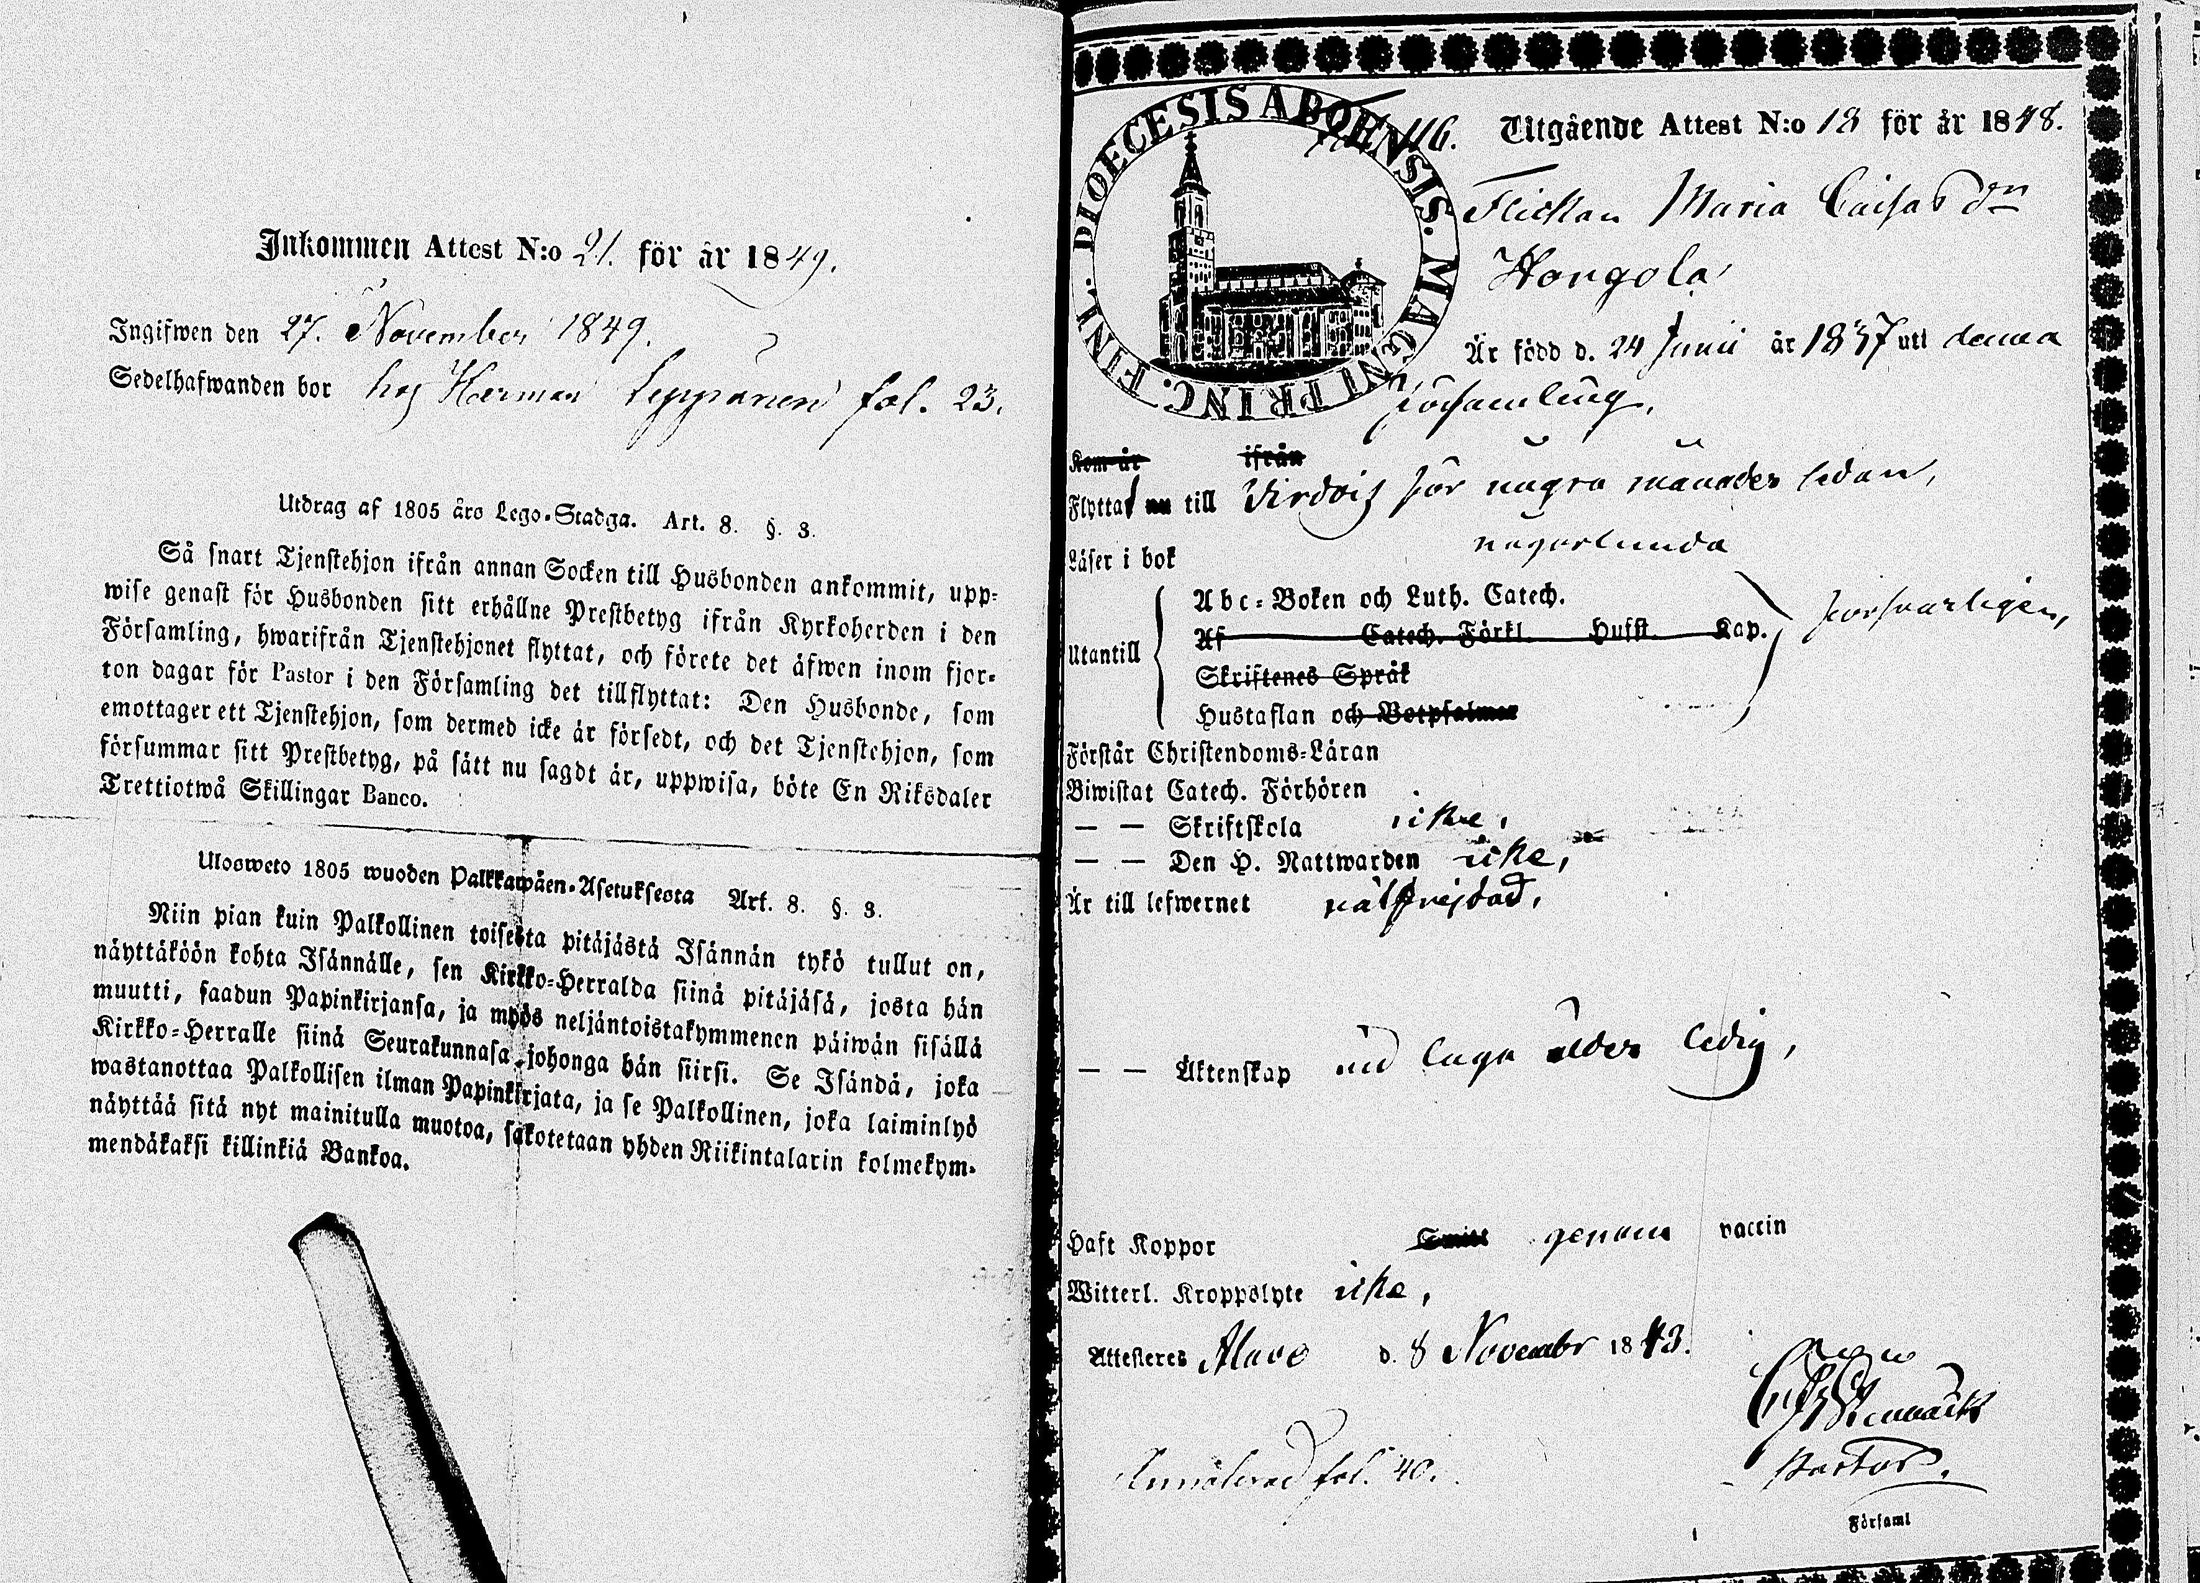 Inkommen Attest N:o 21. för år 1849.
Ingifwen den 27. November 1849.
Sedelhafwanden bor hos Herman Leppänen fol. 23.
Utdrag af 1805 års Lego-Stadga. Art. 8. §. 3.
Så snart Tjenstehjon ifrån annan Socken till Husbonden ankommit, upp-
wise genast för Husbonden sitt erhållne Prestbetyg ifrån Kyrkoherden i den
Församling, hwarifrån Tjenstehjonet flyttat, och förete det äfwen inom fjor-
ton dagar för Pastor i den Församling det tillflyttat: Den Husbonde, som
emottager ett Tjenstehjon, som dermed icke är försedt, och det Tjenstehjon, som
försummar sitt Prestbetyg, på sätt nu sagdt är, uppwisa, böte En Riksdaler
Trettiotwå Skillingar Banco.
Ulosweto 1805 wuoden Palkkawäen-Asetuksesta Art. 8. §. 3.
Niin pian kuin Palkollinen toisesta pitäjästä Isännän tykö tullut on,
näyttäköön kohta Isännälle, sen Kirkko-Herralda siinä pitäjäsä, josta hän
muutti, saadun Papinkirjansa, ja myös neljäntoistakymmenen päiwän sisällä
Kirkko-Herralle siinä Seurakunnasa, johonga hän siirsi. Se Isändä, joka
wastanottaa Palkollisen ilman Papinkirjata, ja se Palkollinen, joka laiminlyö
näyttää sitä nyt mainitulla muotoa, sakotetaan yhden Riikintalarin kolmekym-
mendäkaksi killinkiä Bankoa.
DIOECESIS ABOENSIS. MAGNI PRINC. FINL.
116. Utgående Attest N:o 18 för år 1848.
Flickan Maria Caisas dn
Hongola
Är född d. 24 Junii år 1837 uti denna
församling.
Kom år ifrån
Flyttat nu till Virdois för några månader sedan,
Läser i bok någorlunda
Utantill
Abc-Boken och Luth. Catech.
Af Catech. Förkl. Hufst. Kap.
Skriftenes Språk
Hustaflan och Botpsalmer
försvarligen,
Förstår Christendoms-Läran
Biwistat Catech. Förhören
— — Skriftskola icke,
— — Den H. Nattwarden icke,
Är till lefwernet välfrejdad,
— — Äktenskap vid laga ålder ledig,
Haft Koppor Smitt genom vaccin
Witterl. Kroppslyte icke,
Attesteres Alavo d. 8 Novembr 1848.
Stenbäck
Pastor.
Annoterad fol. 40.
Församl